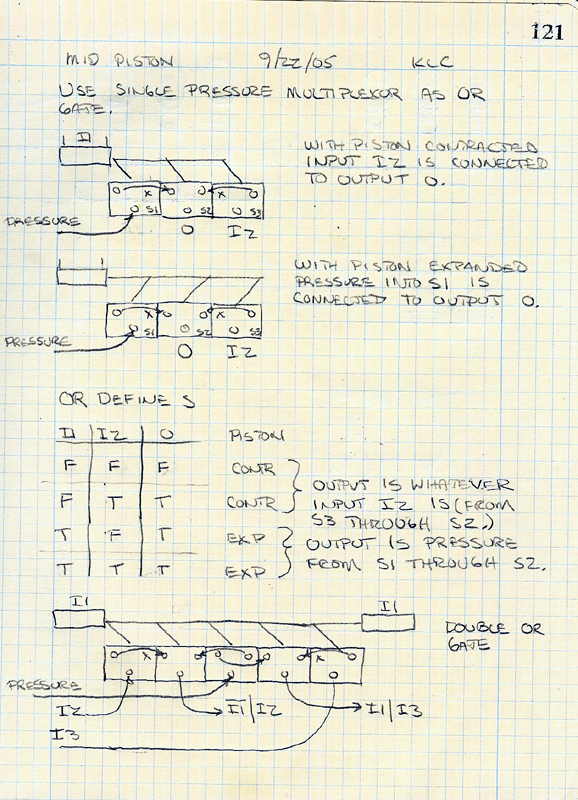 121
MID PISTON 9/22/05 KLC
USE SINGLE PRESSURE MULTIPLEXOR AS OR
GATE.
I1
WITH PISTON CONTRACTED
INPUT I2 IS CONNECTED
TO OUTPUT O.
X X
S1 S2 S3
PRESSURE
O I2
WITH PISTON EXPANDED
PRESSURE INTO S1 IS
CONNECTED TO OUTPUT O.
X X
S1 S2 S3
PRESSURE
O I2
OR DEFINES
I1 I2 O PISTON
F F F CONTR
F T T CONTR
T F T EXP
T T T EXP
OUTPUT IS WHATEVER
INPUT I2 IS (FROM
S3 THROUGH S2.)
OUTPUT IS PRESSURE
FROM S1 THROUGH S2.
I1 I1
DOUBLE OR
GATE
X X
PRESSURE
I2 I1/I2 I1/I3
I3